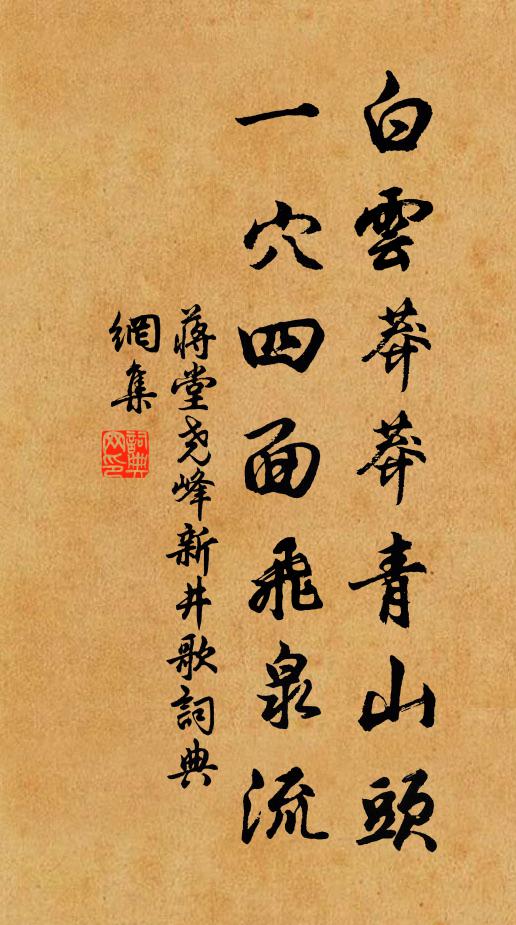 白雲莽莽青山頭
一穴四面飛泉流
蔣堂尧峰新井歌詞典
網集
詞典
网印